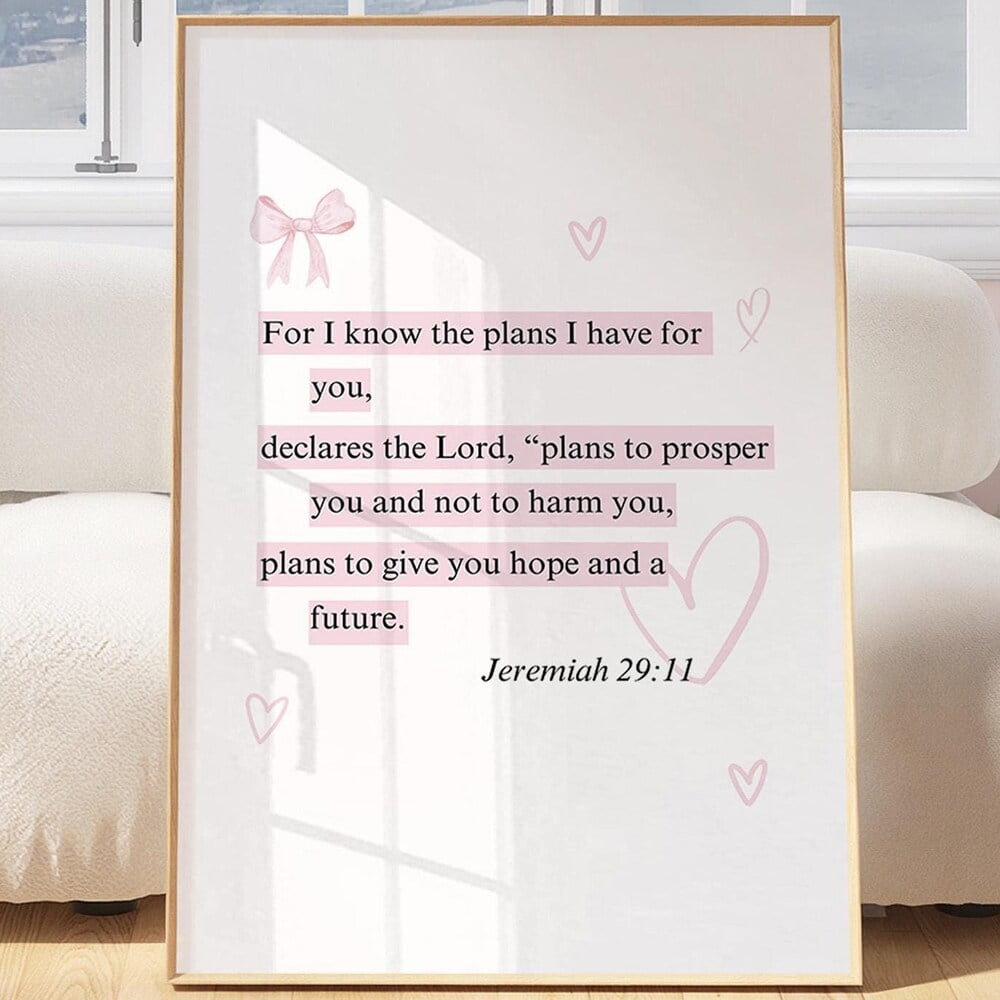 For I know the plans I have for
you,
declares the Lord, “plans to prosper
you and not to harm you,
plans to give you hope and a
future.
Jeremiah 29:11